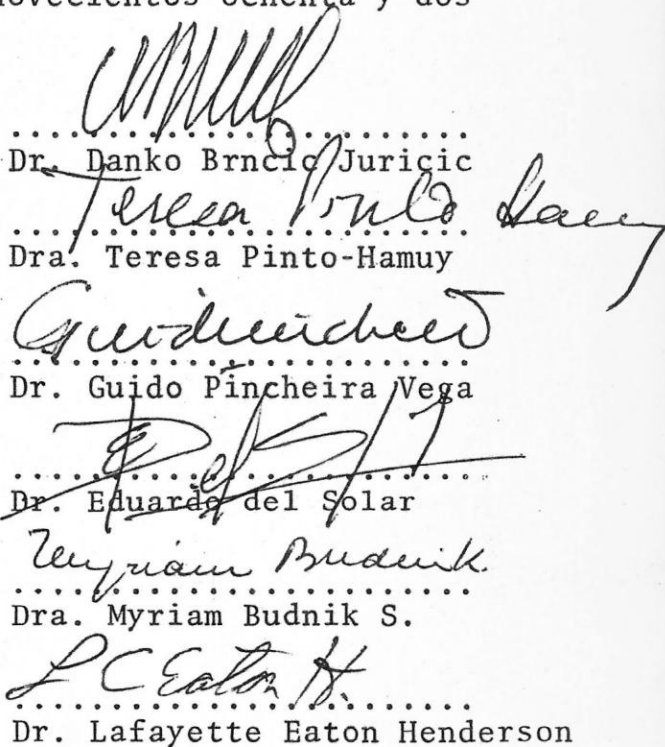 novecientos ochenta y dos
Dr. Danko Brncic Juricic
Teresa Pinto Hamuy
Dra. Teresa Pinto-Hamuy
Dr. Guido Pincheira Vega
Dr. Eduardo del Solar
Myriam Budnik.
Dra. Myriam Budnik S.
L C Eaton H.
Dr. Lafayette Eaton Henderson